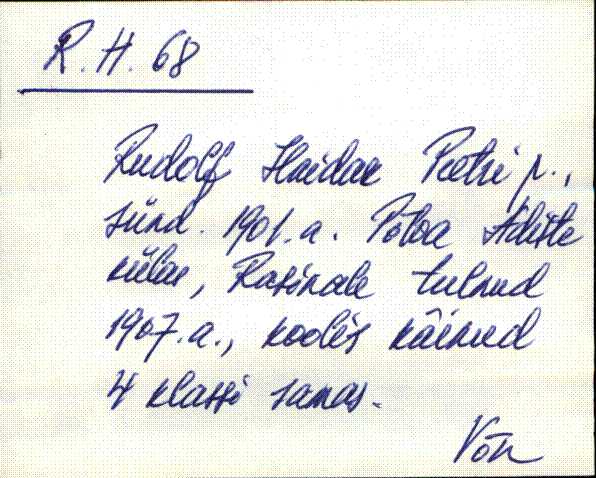 R. H. 68
Rudolf Haidak Peetri p.,
sünd. 1901. a. Põlva Adiste
külas, Rasinale tulnud
1907. a., koolis käinud
4 klassi samas.
Võn